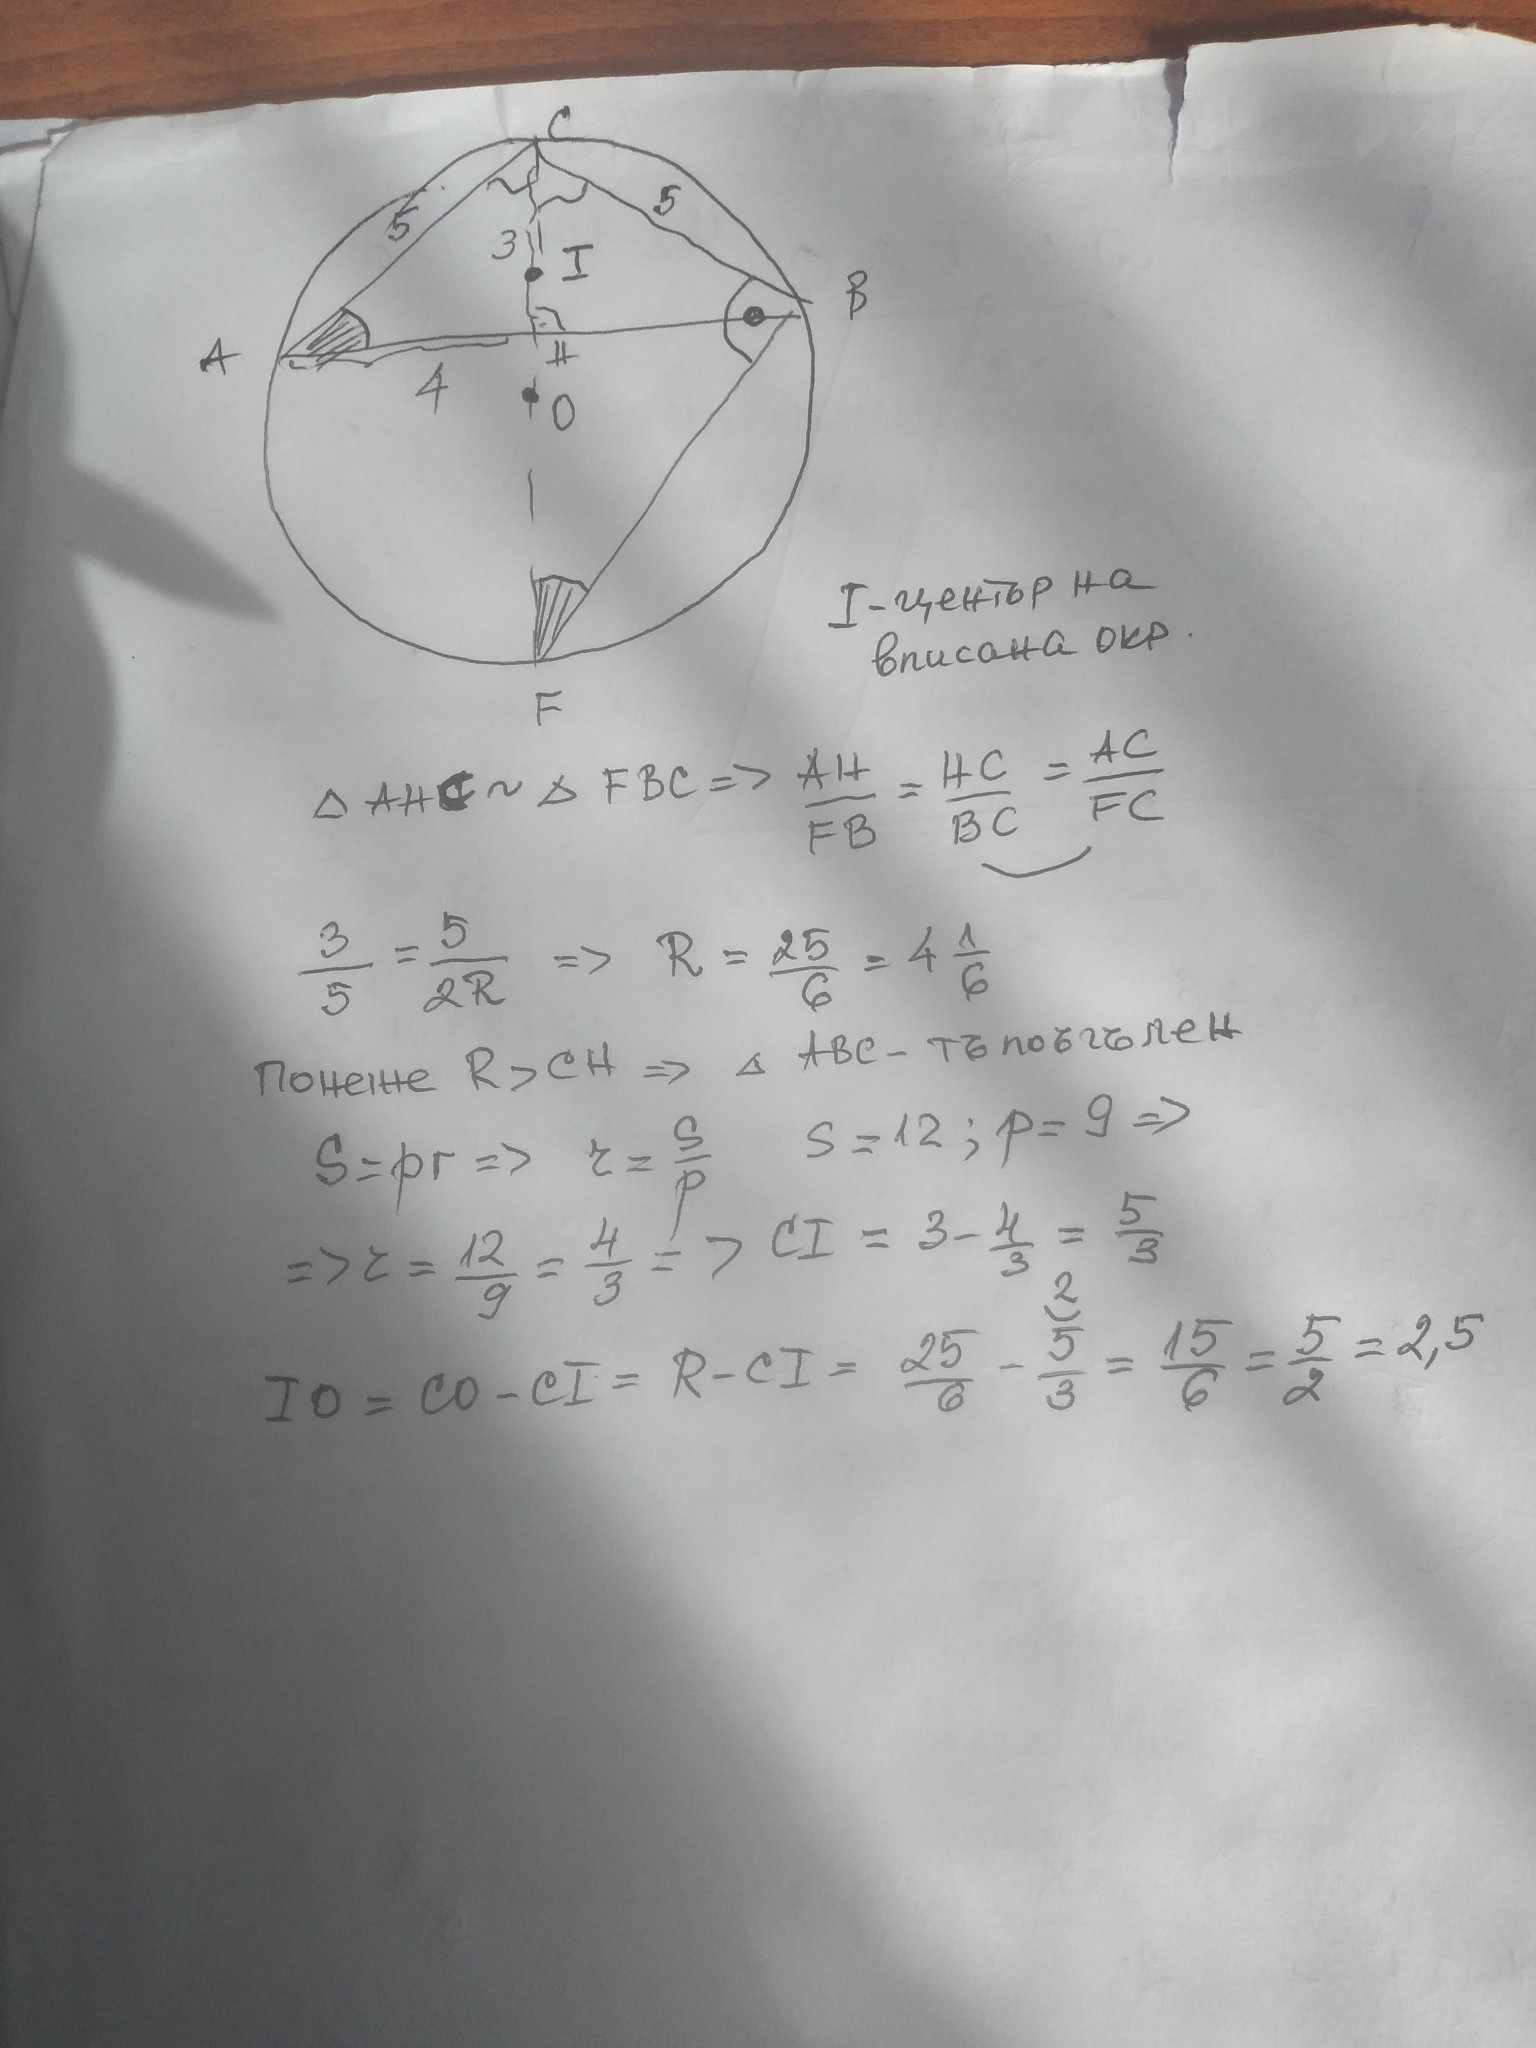 C
5
5
3
I
B
A
H
4
O
I-център на
вписана окр.
F
△ AHC ~ △ FBC => AH/FB = HC/BC = AC/FC
3/5 = 5/2R => R = 25/6 = 4 1/6
Понеже R > CH => △ ABC - тъпоъгълен
S = pr => r = S/p S = 12 ; p = 9 =>
=> r = 12/9 = 4/3 => CI = 3 - 4/3 = 5/3
2
IO = CO - CI = R - CI = 25/6 - 5/3 = 15/6 = 5/2 = 2,5